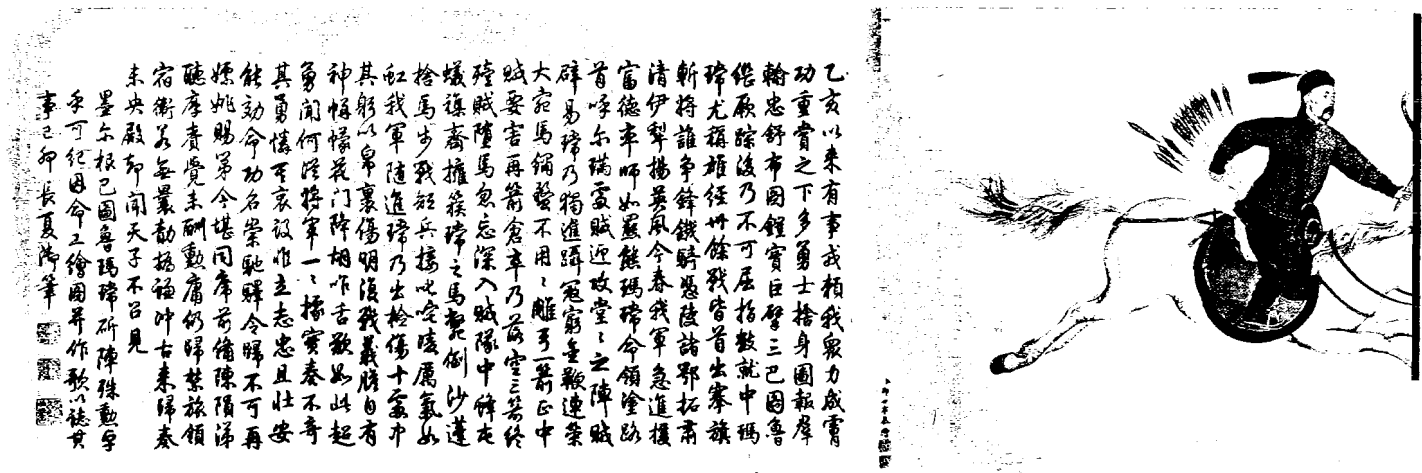 乙亥以來有事戎賴我衆力咸奮
功重賞之下多勇士捨身圖報羣
輸忠舒布圖鎧實巨擘三巴圖魯
繼厥踪後乃不可屈指數就中瑪
瑺尤稱雄經卅餘戰皆首出搴旗
斬將誰争鋒鐵騎憑陵諸鄂拓肅
清伊犁揚英風今春我軍急進援
富德率師如羆熊瑪瑺命領塗路
首呼尔璊處賊迎攻堂〻之陣賊
辟易瑺乃獨進躡冦窮金鞭連策
大宛馬鐲盤不用〻雕弓一箭正中
賊要害再箭倉卒乃落空三箭終
殪賊墮馬忽忘深入賊隊中鋒屯
蟻旗齊擁簇瑺之馬斃倒沙蓬
捨馬步戰短兵接叱咤陵厲氣如
虹我軍隨進瑺乃出檢傷十處中
其躬以帛裹傷明復戰義膽自有
神幬幪花門降胡咋舌歎如此超
勇聞何從將軍一〻據實奏不奇
其勇憐其衷設非立志忠且壯安
能効命功名崇馳驛令歸不可再
嫖姚賜第今堪同席前備陳隕涕
聽厚賚覺未酬勳庸仍歸禁旅領
宿衛若無曩勣撝謙冲古來歸奏
未央殿卻聞天子不召見
墨尔根巴圖魯瑪瑺斫陣殊勳卓
卓可紀因命工繪圖并作歌以誌其
事己卯長夏御筆